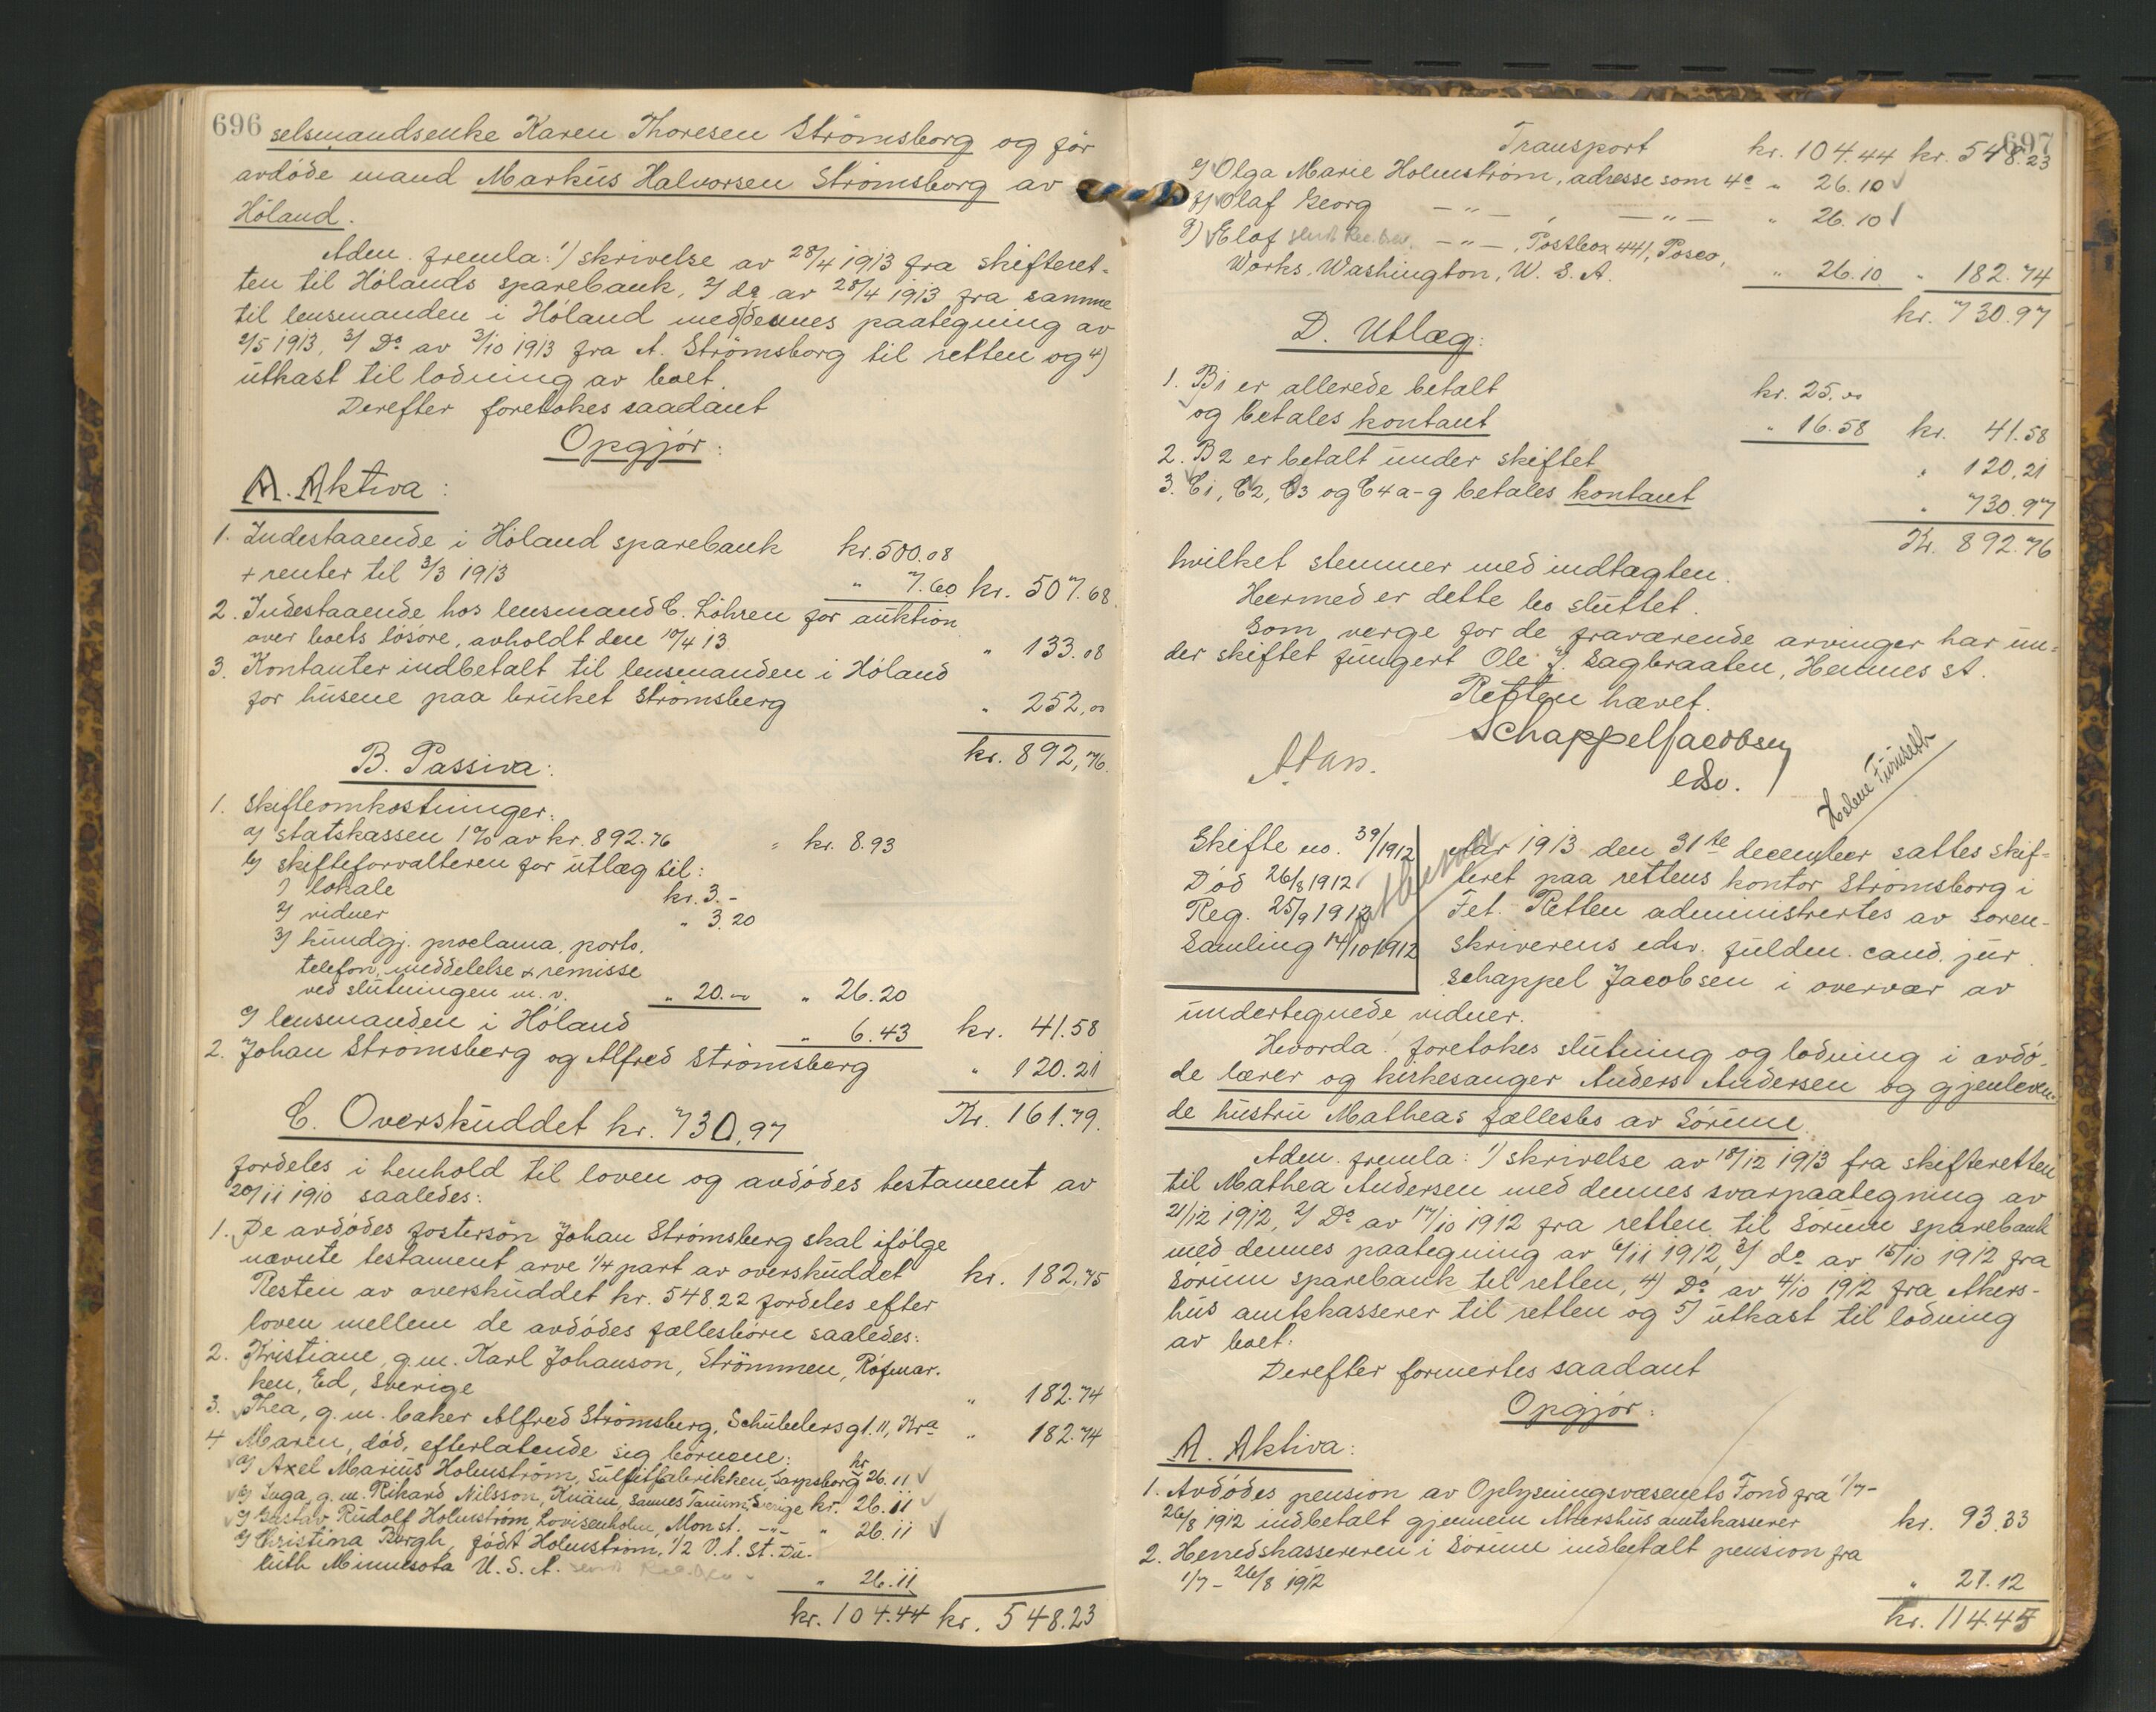 696
selsmandsenke Karen Thoresen Strömsborg og før
avdøde mand Markus Halvorsen Strömsborg av
Höland.
Aden. fremla: 1) skrivelse av 28/4 1913 fra skifteret-
ten til Hölands sparebank, 2) do av 28/4 1913 fra samme
til lensmanden i Höland med dennes paategning av
2/5 1913, 3) Do av 3/10 1913 fra A. Strömsborg til retten og 4)
utkast til lodning av boet.
Derefter foretokes saadant
Opgjör:
A. Aktiva:
1. Indestaaende i Höland sparebank kr. 500.08
+ renter til 3/3 1913 " 7.60 kr. 507.68
2. Indestaaende hos lensmand C. Löhren for auktion
over boets lösöre, avholdt den 10/4 13 " 133.08
3. Kontanter indbetalt til lensmanden i Höland
for husene paa bruket Strömsberg " 252,00
kr. 892,76.
B. Passiva:
1. Skifteomkostninger:
a) statskassen 1% av kr. 892.76 " kr. 8.93
b) skifteforvalteren for utlæg til:
1) lokale kr. 3.-
2) vidner " 3.20
3) kundgj. proclama, porto,
telefon, meddelelse & remisse
ved slutningen m. v. " 20.00 " 26.20
c) lensmanden i Höland " 6.43 kr. 41.58
2. Johan Strömsberg og Alfred Strömsberg " 120.21
Kr. 161.79.
C. Overskuddet kr. 730,97
fordeles i henhold til loven og avdødes testament av
20/11 1910 saaledes:
1. De avdødes fostersön Johan Strömsberg skal ifölge
nævnte testament arve 1/4 part av overskuddet kr. 182,75
Resten av overskuddet kr. 548.22 fordeles efter
loven mellem de avdødes fællesbörn saaledes:
2. Kristiane, g.m. Karl Johanson, Strömmen, Röfmar.
ken, Ed, Sverige " 182.74
3. Thea, g.m. baker Alfred Strömsberg, Schübelersgt. 11, Kra " 182.74
4 Maren, död, efterlatende sig börnene:
a) Axel Marius Holmström, Sulfitfabrikken, Sarpsborg kr 26.11
b) Inga, g.m. Rikard Nilsson, Knäm, Sannes Tanum, Sverige kr. 26.11
c) Gustav Rudolf Holmström Lovisenholm, Mon st. -"- " 26.11
d) Christina Bergh, födt Holmström, 1/2 V. 1. St. Du-
luth Minnesota U.S.A. sendt Rec. " 26.11
kr. 104.44 kr. 548.23
697
Transport kr. 104.44 kr. 548.23
e) Olga Marie Holmström, adresse som 4c " 26.10
f) Olaf Georg -"- , -"- " 26.10
g) Elof sendt Rec. -"- , Postbox 441, Posco,
Works, Washington, U.S.A. " 26.10 " 182.74
kr. 730.97
D. Utlæg:
1. B1 er allerede betalt kr. 25.00
og betales kontant " 16.58 kr. 41.58
2. B2 er betalt under skiftet " 120.21
3. C1, C2, C3 og C4 a-g betales kontant " 730.97
Kr. 892.76
hvilket stemmer med indtægten.
Hermed er dette bo sluttet.
Som verge for de fraværende arvinger har un-
der skiftet fungert Ole J. Sagbraaten, Hemnes st.
Retten hævet.
Schappel Jacobsen
edsv.
Helene Furuseth
Skifte no. 39/1912
Död 26/8 1912
Reg. 25/9 1912
Samling 14/10 1912
Aar 1913 den 31te december sattes skif-
teret paa rettens kontor Strömsborg i
Fet. Retten administrertes av soren-
skriverens edsv. fuldm. cand. jur.
Schappel Jacobsen i overvær av
undertegnede vidner.
Hvorda! foretokes slutning og lodning i avdø-
de lærer og kirkesanger Anders Andersen og gjenleven-
de hustru Matheas fællesbo av Sörum.
Aden. fremla: 1) skrivelse av 18/12 1913 fra skifteretten
til Mathea Andersen med dennes svarpaategning av
21/12 1912, 2) Do av 17/10 1912 fra retten til Sörum sparebank
med dennes paategning av 6/11 1912, 3) do av 15/10 1912 fra
Sörum sparebank til retten, 4) Do av 4/10 1912 fra Akers-
hus amtskasserer til retten og 5) utkast til lodning
av boet.
Derefter formertes saadant
Opgjör:
A. Aktiva:
1. Avdødes pension av Oplysningsvæsenets Fond fra 1/7-
26/8 1912 indbetalt gjennem Akershus amtskasserer kr. 93.33
2. Herredskassereren i Sörum indbetalt pension fra
1/7 - 26/8 1912 " 21.12
kr. 114.45